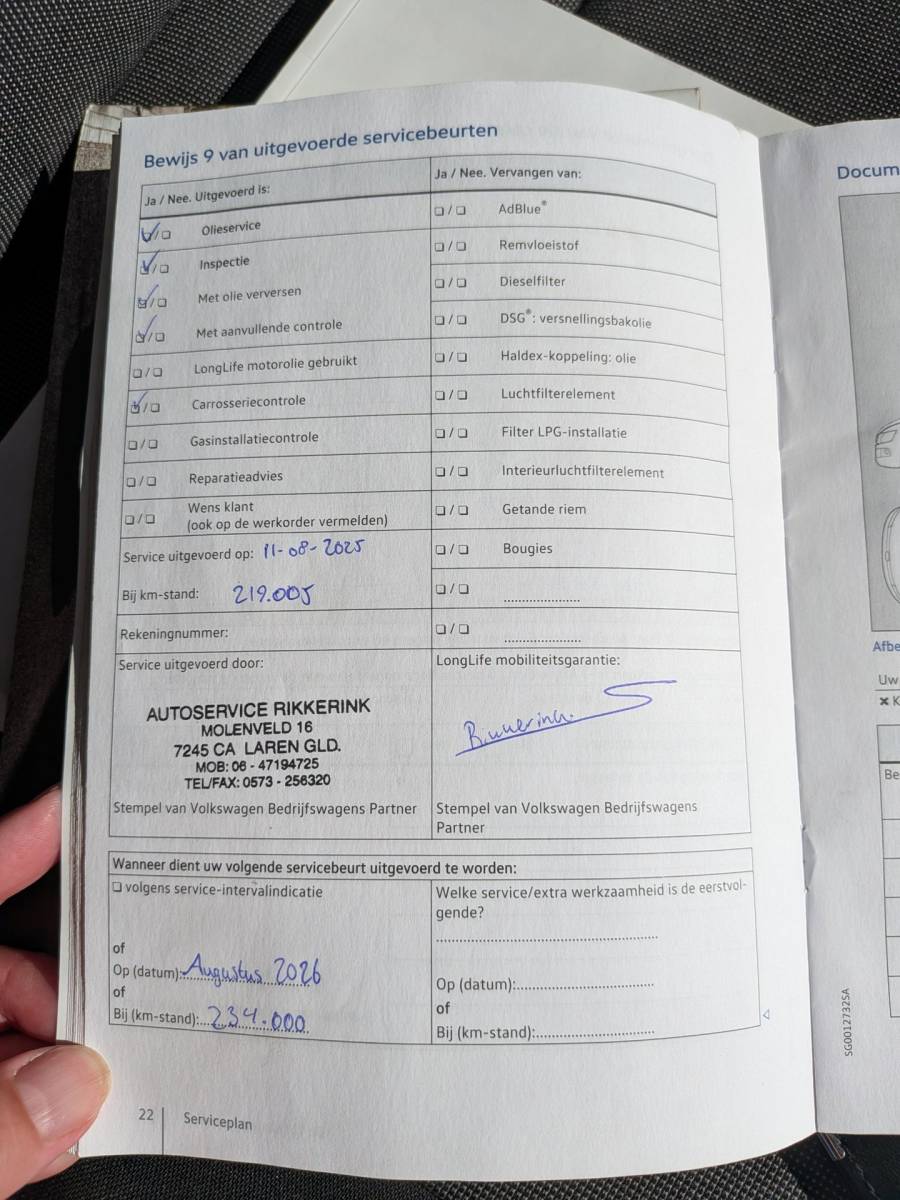 Bewijs 9 van uitgevoerde servicebeurten
Ja / Nee. Uitgevoerd is:
Olieservice
Inspectie
Met olie verversen
Met aanvullende controle
LongLife motorolie gebruikt
Carrosseriecontrole
Gasinstallatiecontrole
Reparatieadvies
Wens klant
(ook op de werkorder vermelden)
Service uitgevoerd op: 11-08-2025
Bij km-stand: 219.005
Rekeningnummer:
Service uitgevoerd door:
AUTOSERVICE RIKKERINK
MOLENVELD 16
7245 CA LAREN GLD.
MOB: 06 - 47194725
TEL/FAX: 0573 - 256320
Stempel van Volkswagen Bedrijfswagens Partner
Ja / Nee. Vervangen van:
AdBlue®
Remvloeistof
Dieselfilter
DSG®: versnellingsbakolie
Haldex-koppeling: olie
Luchtfilterelement
Filter LPG-installatie
Interieurluchtfilterelement
Getande riem
Bougies
LongLife mobiliteitsgarantie:
Stempel van Volkswagen Bedrijfswagens
Partner
Wanneer dient uw volgende servicebeurt uitgevoerd te worden:
volgens service-intervalindicatie
of
Op (datum): Augustus 2026
of
Bij (km-stand): 234.000
Welke service/extra werkzaamheid is de eerstvol-
gende?
Op (datum):
of
Bij (km-stand):
22 Serviceplan
Docum
Afbe
Uw
Be
SG0012732SA